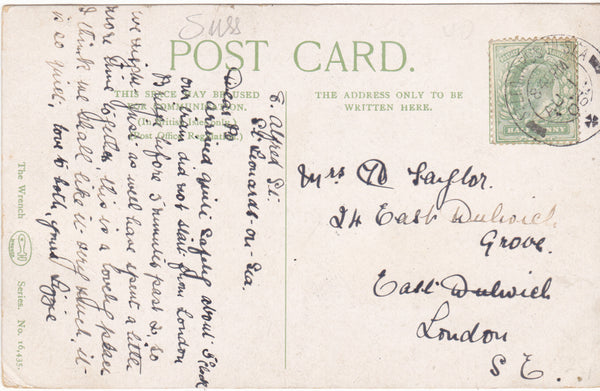 Suss
POST CARD.
THIS SPACE MAY BE USED
FOR COMMUNICATION.
(In British Isles only.)
Post Office Regulation.)
THE ADDRESS ONLY TO BE
WRITTEN HERE.
HALFPENNY
Alfred St.
St. Leonards-on-Sea.
Dear
arrived quite safely about 5 o'clock
our train did not start from London
before 5 minutes past 2, so
we might just as well have spent a little
more time together, this is a lovely place
I think we shall like it very much, it
is so quiet, love to both, yours Lizzie
Mrs Taylor.
24 East Dulwich
Grove.
East Dulwich
London
S.E.
The Wrench
Series. No. 16,435.